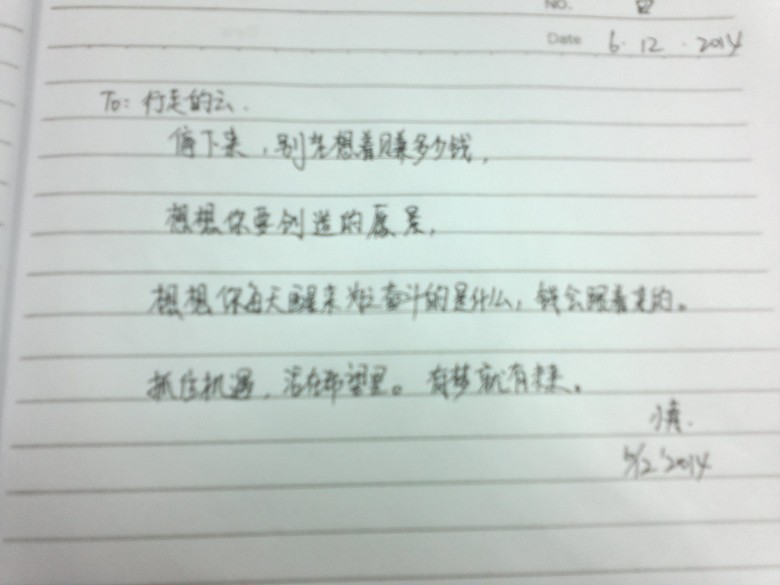 No.
Date 6.12.2014
To: 行走的云.
停下来,别老想着赚多少钱,
想想你要创造的愿景,
想想你每天醒来为之奋斗的是什么,钱会跟着来的。
抓住机遇,活在希望里。有梦就有未来。
5/12'2014